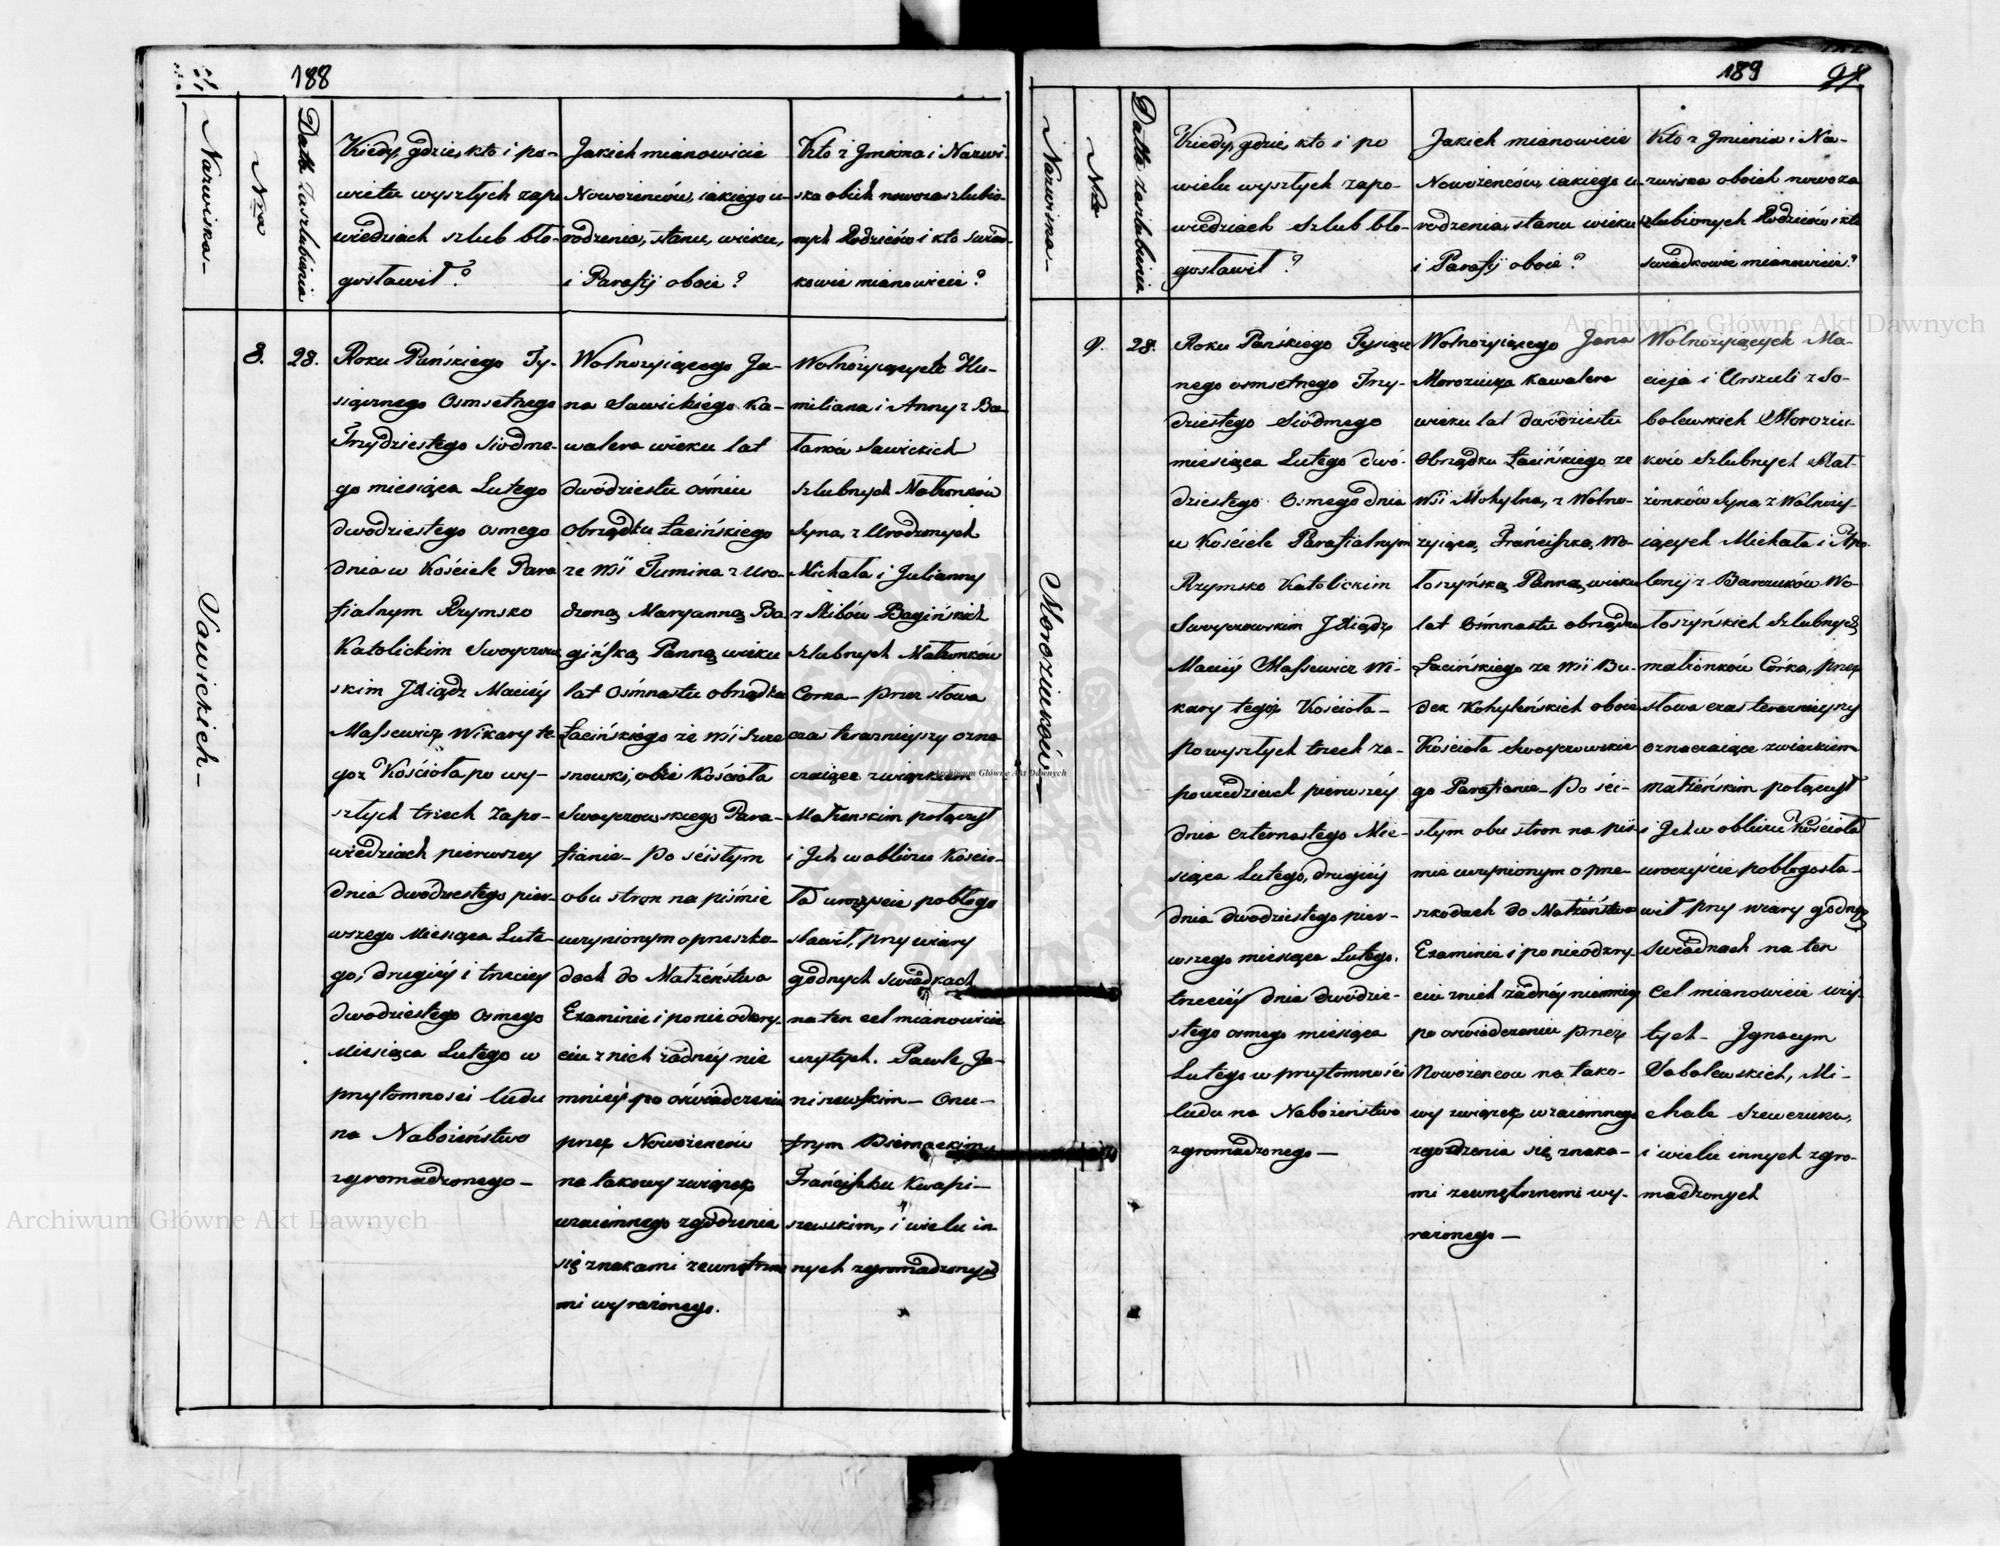 188
Nazwiska
Nra
Data Zaszlubienia
Kiedy, gdzie, kto i po-
wielu wyszłych zapo
wiedziach szlub bło-
gosławił?
Jakich mianowicie
Nowożenców, iakiego u-
rodzenia, stanu, wieku,
i Parafij oboie?
Kto z Jmienia i Nazwi-
ska obich nowozaszlubio-
nych Rodziców i kto swiad-
kowie mianowicie?
Sawickich
8.
28.
Roku Pańskiego Ty-
siącznego Osmsetnego
Trzydziestego siodme-
go miesiąca Lutego
dwódziestego osmego
dnia w Kościele Para
fialnym Rzymsko
Katolickim Swoyczow
skim JXiądz Maciéy
Massewicz Wikary te-
goz Kościoła po wy-
szłych trzech Zapo-
wiedziach pierwszey
dnia dwódziestego pier-
wszego Miesiąca Lute-
go, drugiéy i trzeciey
dwodziestego Osmego
Miesiąca Lutego w
przytomnosci ludu
na Nabożeństwo
zgromadzonego
Wolnożyiącego Ja-
na Sawickiego Ka-
walera wieku lat
dwódziestu ośmiu
Obrządku Łacińskiego
ze Wsi Tumina z Uro-
dzoną Maryanną Ba
gińską Panną wieku
lat Osmnastu obrządku
Łacińskiego ze Wsi
obie Kościoła
Swoyczowskiego Para-
fianie Po ścisłym
obu stron na piśmie
uczynionym o przeszko-
dach do Małżeństwa
Examinie i po nie odkry-
ciu z nich żadnéy nie
mniéy po oświadczeniu
przez Nowożencow
na takowy związek
wzaiemnego zgodzenia
się znakami zewnętrzne
mi wyrażonego.
Wolnożyiących
miliana i Anny z Ba
Sawickich
szlubnych Małżonków
Syna, z Urodzonych
Michała i Julianny
z Skibów Bagińskich
szlubnych Małżonkow
Corka przez słowa
czas teraznieyszy ozna
czaiące związkiem
Małżenskim połączył
i Jch w obliczu Kościo-
ła uroczyscie pobłogo
sławił, przy wiary
godnych swiadkach
na ten cel mianowicie
użytych. Pawle Ja-
niszewskim Onu-
frym
Franciszku Kwapi-
szewskim, i wielu in
nych zgromadzonych
189
98
Nazwiska
Nra
Datta zaslubienia
Kiedy, gdzie, kto i po
wielu wyszłych zapo-
wiedziach Szlub bło-
gosławił?
Jakich mianowicie
Nowożenców, iakiego u-
rodzenia, stanu wieku
i Parafij oboie?
Kto z Jmienia i Na-
zwiska oboich nowoza
szlubionych Rodziców i kto
swiadkowie mianowicie?
Moroziuków
9.
28.
Roku Pańskiego Tysiącz
nego osmsetnego Trzy-
dziestego Siódmego
miesiąca Lutego dwó-
dziestego Osmego dnia
w Kościele Parafialnym
Rzymsko Katolickim
Swoyczowskim JXiądz
Maciéy Massewicz Wi-
kary tegoż Kościoła
po wyszłych trzech za-
powiedziach pierwszéy
dnia czternastego Mie-
siąca Lutego, drugiéy
dnia dwodziestego pier-
wszego miesiąca Lutego.
trzeciéy dnia dwodzie-
stego osmego miesiąca
Lutego w przytomności
ludu na Nabożeństwo
zgromadzonego
Wolnożyiącego Jana
Moroziuka Kawalera
wieku lat dwódziestu
Obrządku Łacińskiego ze
Wsi Mohylna, z Wolno-
żyiącą Franciszką Wo-
łoszyńską Panną wieku
lat Osmnastu obrządku
Łacińskiego ze Wsi Bu-
dek Kohyleńskich oboie
Kościoła Swoyczowskie
go Parafianie Po ści-
słym obu stron na piś-
mie uczynionym o prze-
szkodach do Małżeństwa
Examinie i po nieodkry-
ciu z nich żadnéy niemniey
po oświadczeniu przez
Nowożencow na tako-
wy związek wzaiemnego
zgodzenia się znaka-
mi zewnętrznemi wy-
rażonego
Wolnożyiących Ma-
cieja i Urszuli z So-
bolewskich Moroziu-
ków Szlubnych Mał-
żonków Syna z Wolnoży-
iących Michała i Apo
lonij z Barczuków Wo-
łoszyńskich Szlubnych
małżonków Córka, przez
słowa czas teraznieyszy
oznaczaiące zwiazkiem
małżeńskim połączył
i Jch w obliczu Kościoła
uroczyście pobłogosła-
wił przy wiary godnych
swiadkach na ten
cel mianowicie uży-
tych Jgnacym
Sobolewskich, Mi-
chale Szewczuku,
i wielu innych zgro-
madzonych
Archiwum Główne Akt Dawnych
Archiwum Główne Akt Dawnych
Archiwum Główne Akt Dawnych